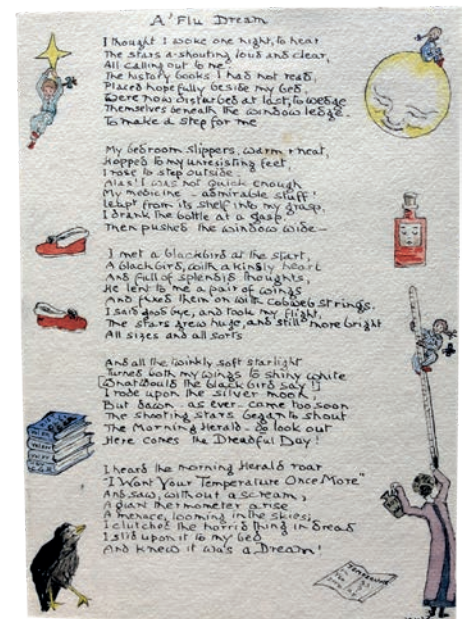 A 'Flu Dream
I thought I woke one night, to hear
The stars a-shouting loud and clear,
All calling out to me.
The history books I had not read,
Placed hopefully beside my bed,
Were now disturbed at last, to wedge
Themselves beneath the window ledge.
To make a step for me
My bedroom slippers, warm & neat,
Hopped to my unresisting feet,
I rose to step outside.
Alas! I was not quick enough
My medicine - admirable stuff!
Leapt from its shelf into my grasp,
I drank the bottle at a gasp,
Then pushed the window wide -
I met a blackbird at the start,
A blackbird, with a kindly heart
And full of splendid thoughts,
He lent to me a pair of wings
And fixed them on with cobweb strings.
I said good bye, and took my flight,
The stars grew huge, and still more bright
All sizes and all sorts
And all the twinkly soft starlight
Turned both my wings to shiny white
[What would the black bird say!]
I rode upon the silver moon,
But dawn - as ever - came too soon
The shooting stars began to shout
The Morning Herald - do look out
Here comes the Dreadful Day!
I heard the morning Herald roar
"I Want Your Temperature Once More"
And saw, without a scream,
A giant thermometer arise
A menace, looming in the skies;
I clutched the horrid thing in dread
I slid upon it to my bed
And knew it was a Dream!